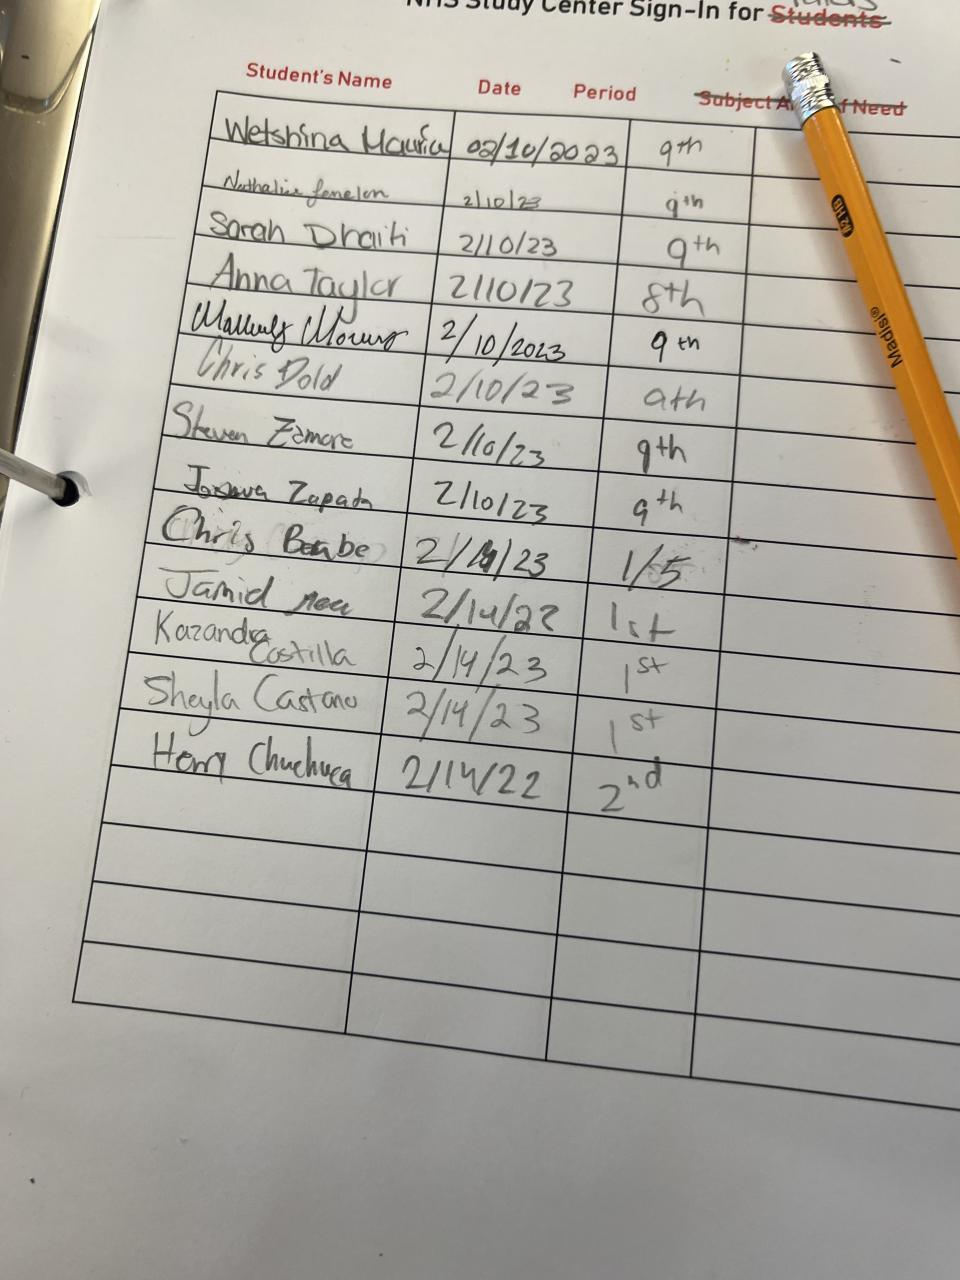 NHS Study Center Sign-In for Students
Student's Name Date Period Subject Need
Wetshina 02/10/2023 9th
Nathalie fenelon 2/10/23 9th
Sarah Dhaiti 2/10/23 9th
Anna Taylor 2/10/23 8th
2/10/2023 9th
Chris Dold 2/10/23 9th
Steven Zamora 2/10/23 9th
Zapata 2/10/23 9th
Chris 2/14/23 1/5
Jamid 2/14/22 1st
Kazandra Costilla 2/14/23 1st
Sheyla Castano 2/14/23 1st
Henry Chuchuca 2/14/22 2nd
Madisi®
#2 HB